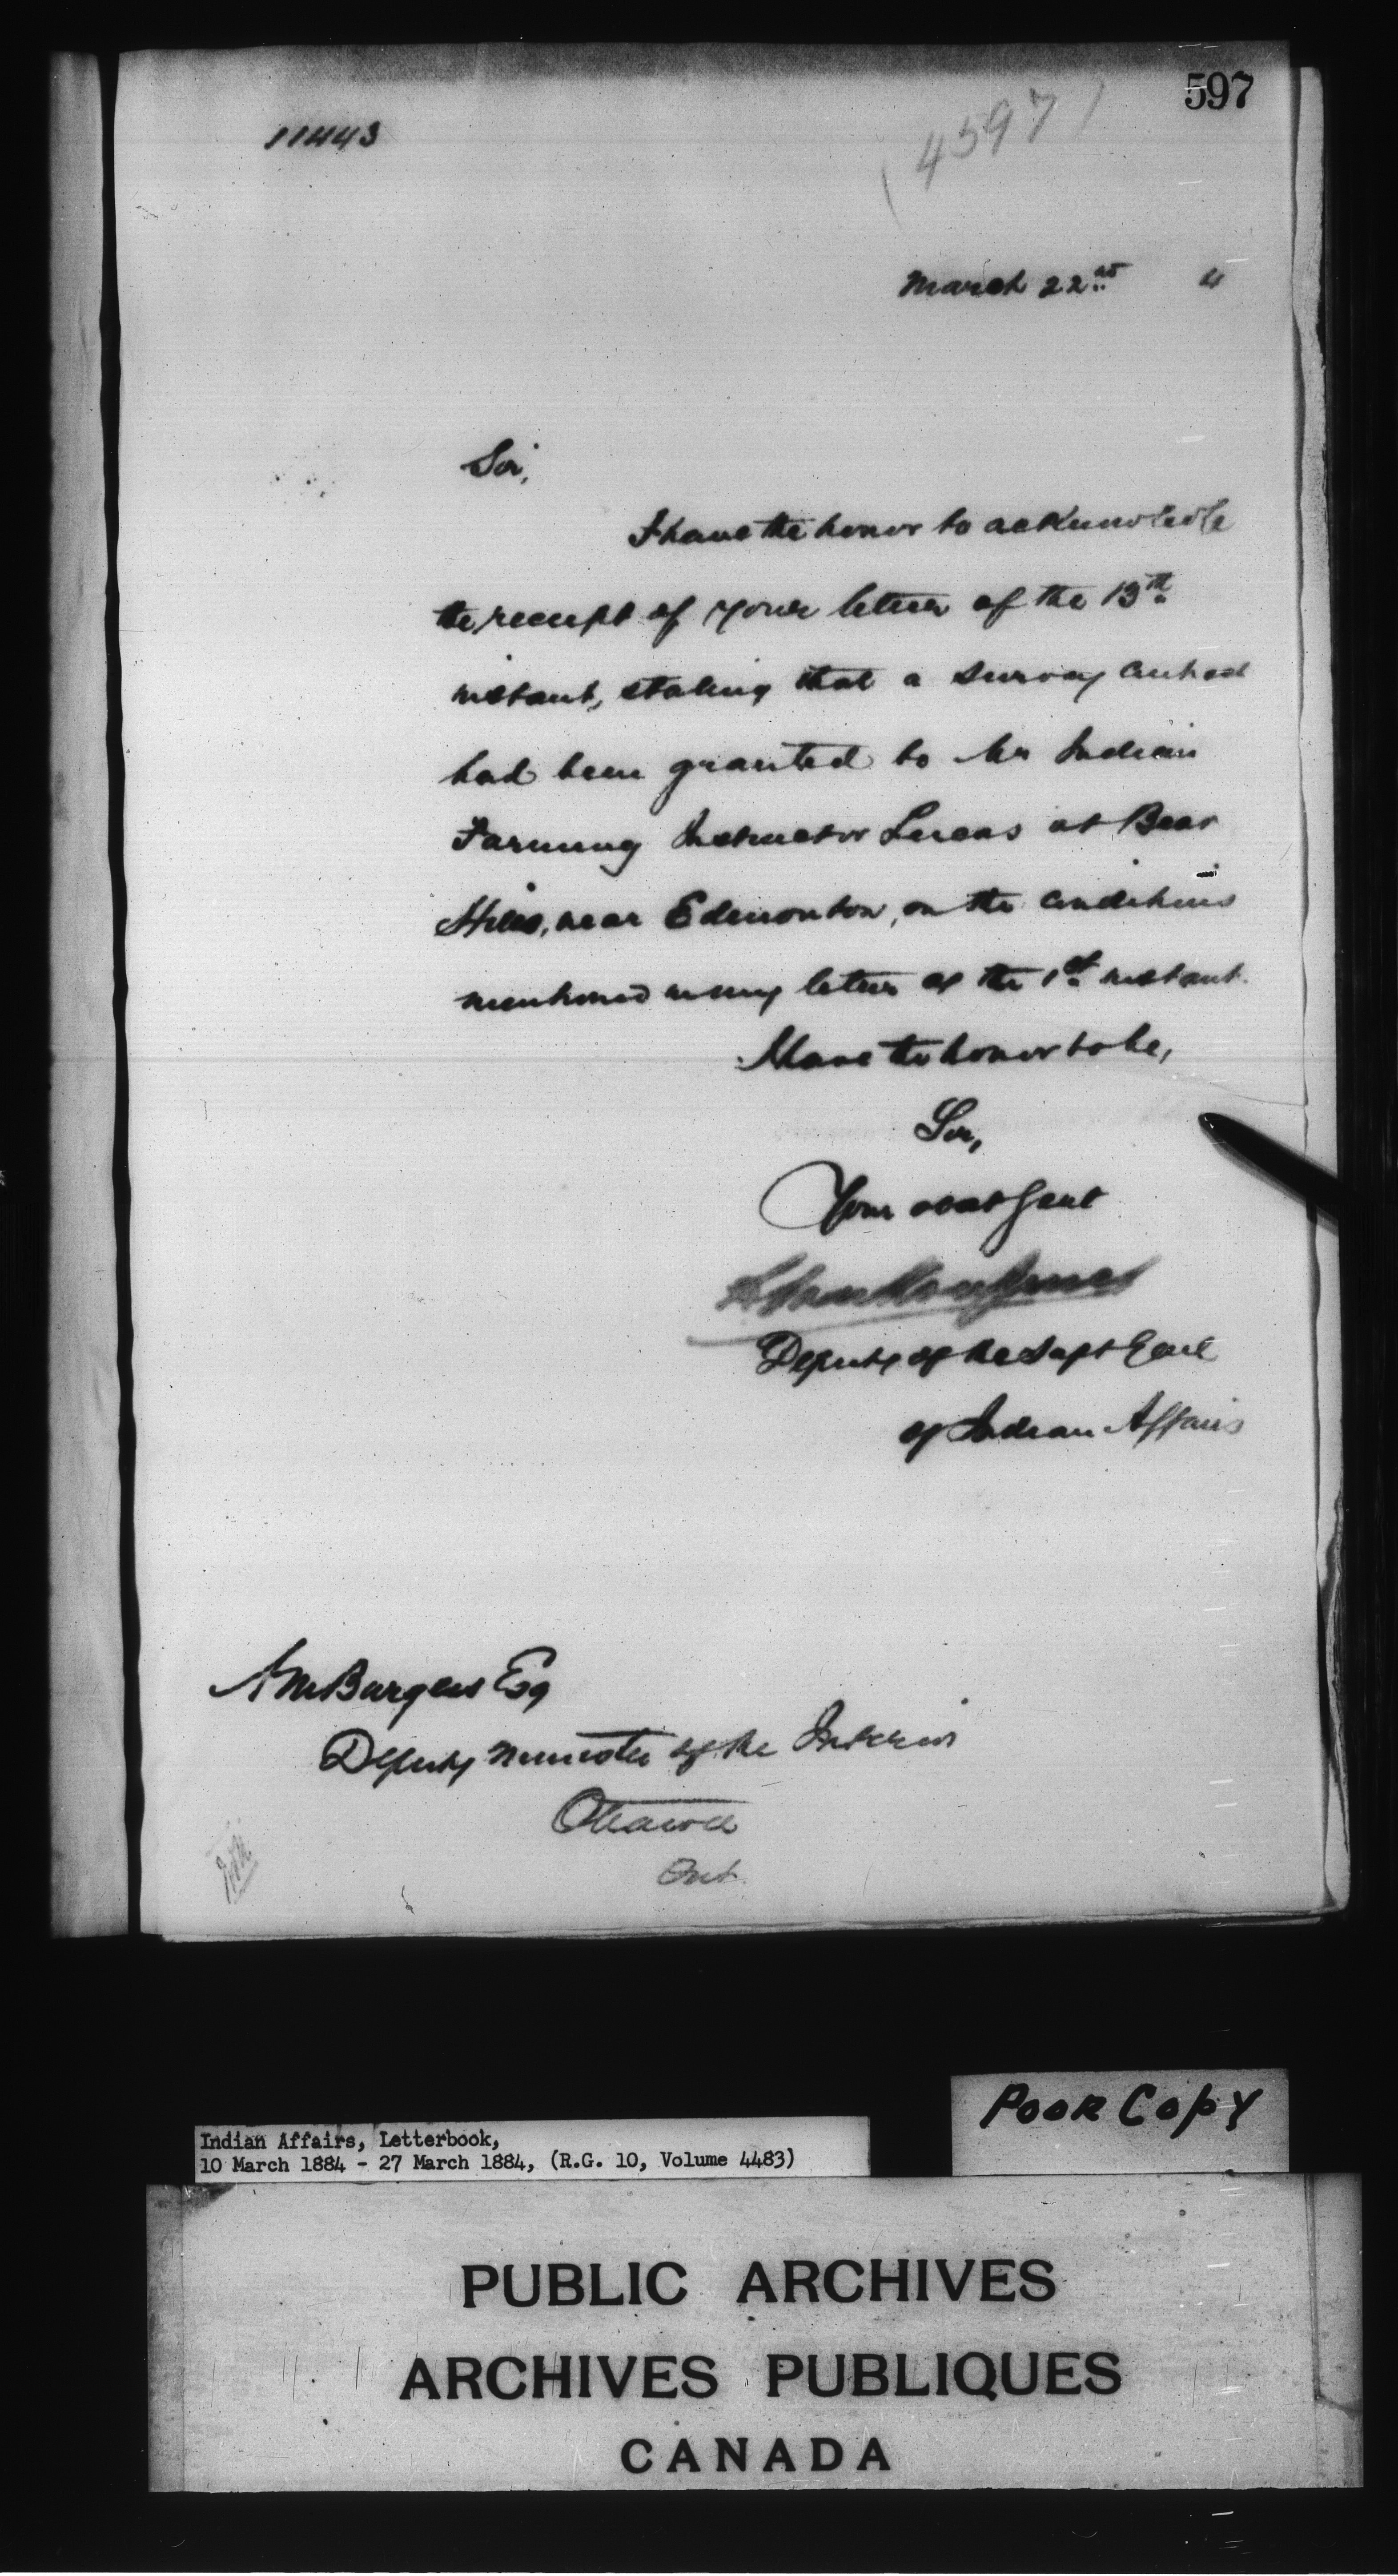 597
11443
(4597)
March 22nd 4
Sir,
I have the honor to acknowledge
the receipt of your letter of the 13th
instant, stating that a survey
had been granted to Mr Indian
Farming Instructor Lucas at Bear
Hills, near Edmonton, on the conditions
mentioned in my letter of the 1st instant.
I have the honor to be,
Sir,
Your obdt Servt
L VanKoughnet
Deputy of the Supt Genl
of Indian Affairs
A M Burgess Esq
Deputy Minister of the Interior
Ottawa
Ont.
POOR COPY
Indian Affairs, Letterbook,
10 March 1884 - 27 March 1884, (R.G. 10, Volume 4483)
PUBLIC ARCHIVES
ARCHIVES PUBLIQUES
CANADA